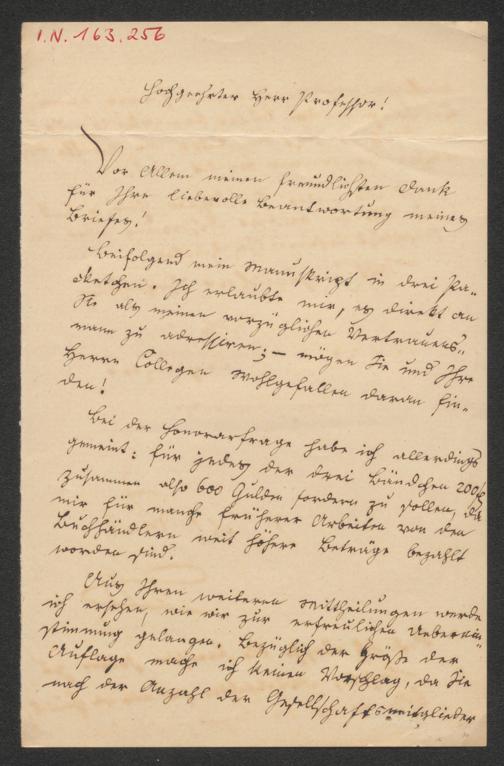 I.N. 163.256
Hochgeehrter Herr Professor!
Vor Allem meinen freundlichsten Dank
für Ihre liebevolle Beantwortung meines
Briefes!
Beifolgend mein Manuskript in drei Pa-
cketchen. Ich erlaubte mir, es direkt an
Sie als meinen vorzüglichen Vertrauens-
mann zu adressiren; – mögen Sie und Ihre
Herren Collegen Wohlgefallen daran fin-
den!
Bei der Honorarfrage habe ich allerdings
gemeint: für jedes der drei Bändchen 200 fl
zusammen also 600 Gulden fordern zu sollen, da
mir für manche früherer Arbeiten von den
Buchhändlern weit höhere Beträge bezahlt
worden sind.
Aus Ihren weiteren Mittheilungen werde
ich ersehen, wie wir zur erfreulichen Ueberein-
stimmung gelangen. Bezüglich der Größe der
Auflage mache ich keinen Vorschlag, da Sie
nach der Anzahl der Gesellschaftsmitglieder